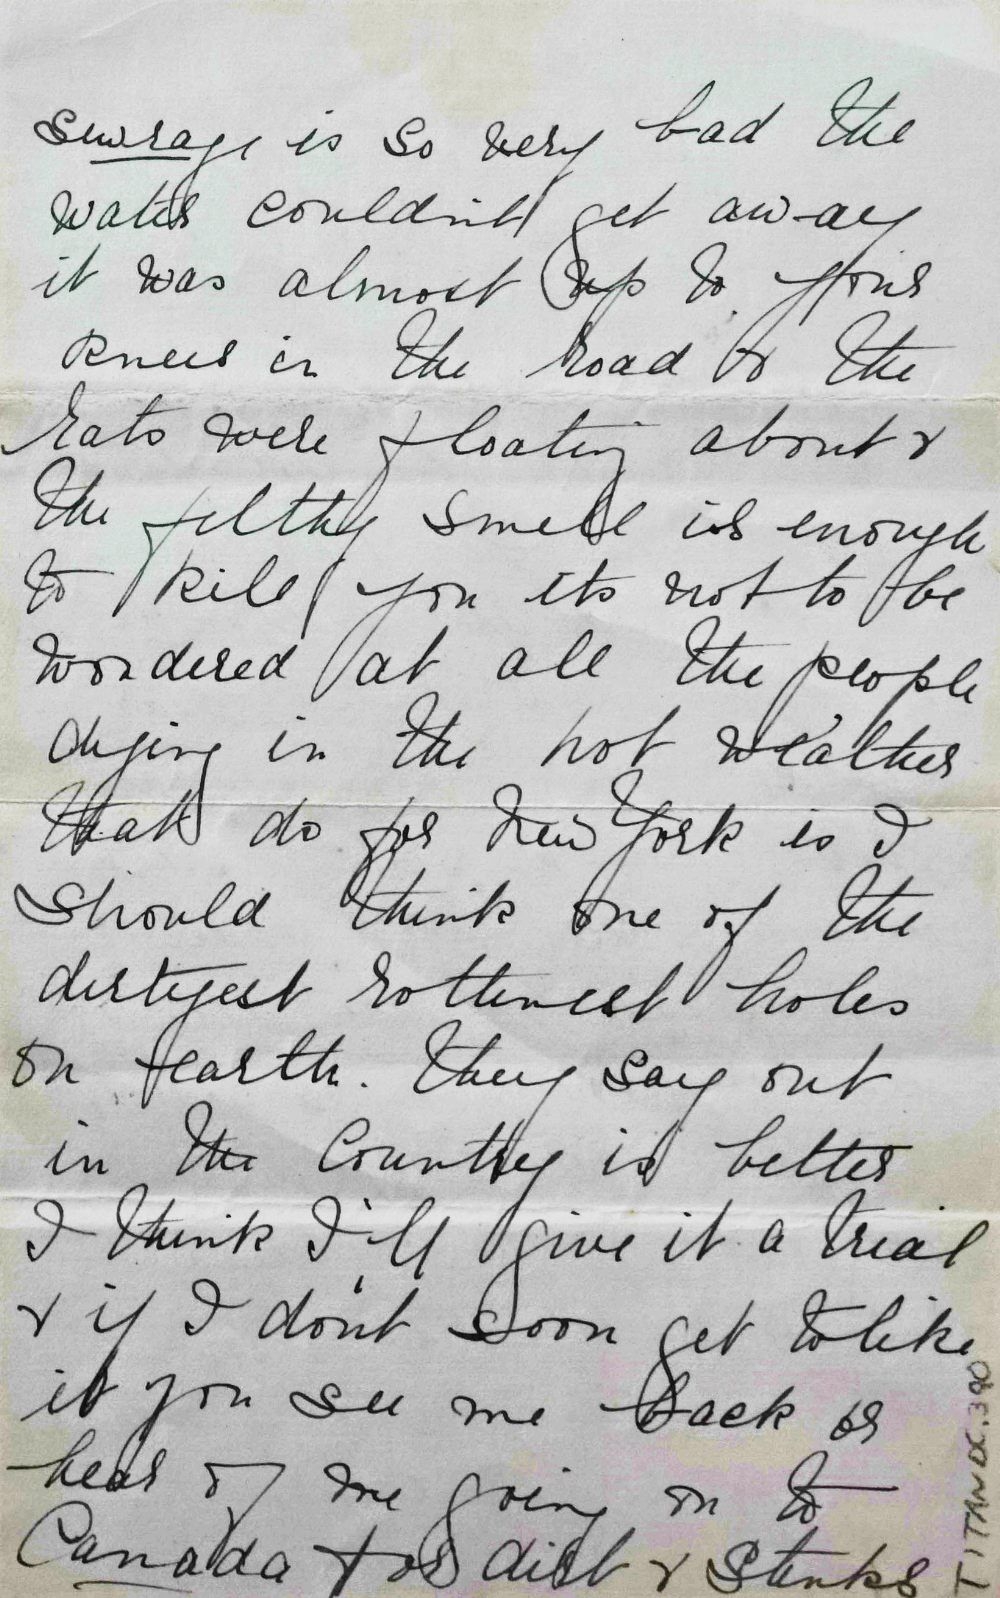 sewrage is so very bad the
water couldn't get away
it was almost up to your
knees in the road & the
rats were floating about &
the filthy smell is enough
to kill you its not to be
wondered at all the people
dying in the hot weather
that do for New York is I
should think one of the
dirtyest rottenest holes
on earth. They say out
in the Country is better
I think I'll give it a trial
& if I don't soon get to like
it you see me back or
hear of me going on to
Canada for dirt & stinks
TITAN DC.390